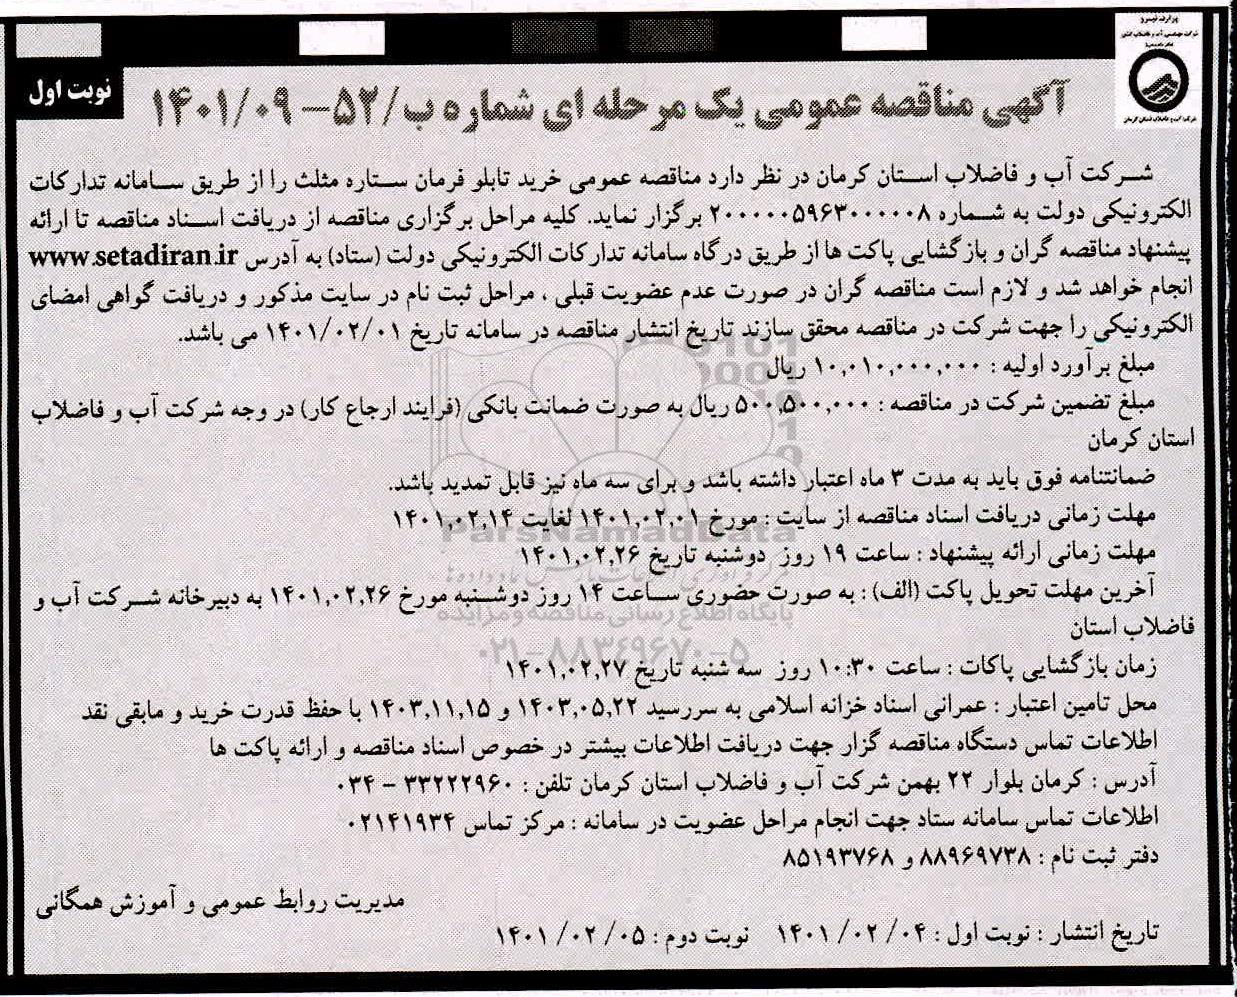 وزارت نیرو
شرکت مهندسی آب و فاضلاب کشور
نوبت اول
شرکت آب و فاضلاب استان کرمان
آگهی مناقصه عمومی یک مرحله ای شماره ب/۵۲- ۱۴۰۱/۰۹
شــرکت آب و فاضلاب اســتان کرمان در نظر دارد مناقصه عمومی خرید تابلو فرمان ســتاره مثلث را از طریق ســامانه تدارکات
الکترونیکی دولت به شــماره ۲۰۰۰۰۰۵۹۶۳۰۰۰۰۰۸ برگزار نماید. کلیه مراحل برگزاری مناقصه از دریافت اســناد مناقصه تا ارائه
پیشنهاد مناقصه گران و بازگشایی پاکت ها از طریق درگاه سامانه تدارکات الکترونیکی دولت (ستاد) به آدرس www.setadiran.ir
انجام خواهد شد و لازم است مناقصه گران در صورت عدم عضویت قبلی ، مراحل ثبت نام در سایت مذکور و دریافت گواهی امضای
الکترونیکی را جهت شرکت در مناقصه محقق سازند تاریخ انتشار مناقصه در سامانه تاریخ ۱۴۰۱/۰۲/۰۱ می باشد.
مبلغ برآورد اولیه : ۱۰,۰۱۰,۰۰۰,۰۰۰ ریال
مبلغ تضمین شرکت در مناقصه : ۵۰۰,۵۰۰,۰۰۰ ریال به صورت ضمانت بانکی (فرایند ارجاع کار) در وجه شرکت آب و فاضلاب
استان کرمان
ضمانتنامه فوق باید به مدت ۳ ماه اعتبار داشته باشد و برای سه ماه نیز قابل تمدید باشد.
مهلت زمانی دریافت اسناد مناقصه از سایت : مورخ ۱۴۰۱,۰۲,۰۱ لغایت ۱۴۰۱,۰۲,۱۴
ParsNamadData
مهلت زمانی ارائه پیشنهاد : ساعت ۱۹ روز دوشنبه تاریخ ۱۴۰۱,۰۲,۲۶
آخرین مهلت تحویل پاکت (الف) : به صورت حضوری ســاعت ۱۴ روز دوشــنبه مورخ ۱۴۰۱,۰۲,۲۶ به دبیرخانه شــرکت آب و
پایگاه اطلاع رسانی مناقصه و مزایده
فاضلاب استان
۰۲۱-۸۸۳۴۹۶۷۰-۵
زمان بازگشایی پاکات : ساعت ۱۰:۳۰ روز سه شنبه تاریخ ۱۴۰۱,۰۲,۲۷
محل تامین اعتبار : عمرانی اسناد خزانه اسلامی به سررسید ۱۴۰۳,۰۵,۲۲ و ۱۴۰۳,۱۱,۱۵ با حفظ قدرت خرید و مابقی نقد
اطلاعات تماس دستگاه مناقصه گزار جهت دریافت اطلاعات بیشتر در خصوص اسناد مناقصه و ارائه پاکت ها
آدرس : کرمان بلوار ۲۲ بهمن شرکت آب و فاضلاب استان کرمان تلفن : ۳۳۲۲۲۹۶۰ - ۰۳۴
اطلاعات تماس سامانه ستاد جهت انجام مراحل عضویت در سامانه : مرکز تماس ۰۲۱۴۱۹۳۴
دفتر ثبت نام : ۸۸۹۶۹۷۳۸ و ۸۵۱۹۳۷۶۸
مدیریت روابط عمومی و آموزش همگانی
تاریخ انتشار : نوبت اول : ۰۴/ ۰۲/ ۱۴۰۱ نوبت دوم : ۰۵/ ۰۲/ ۱۴۰۱